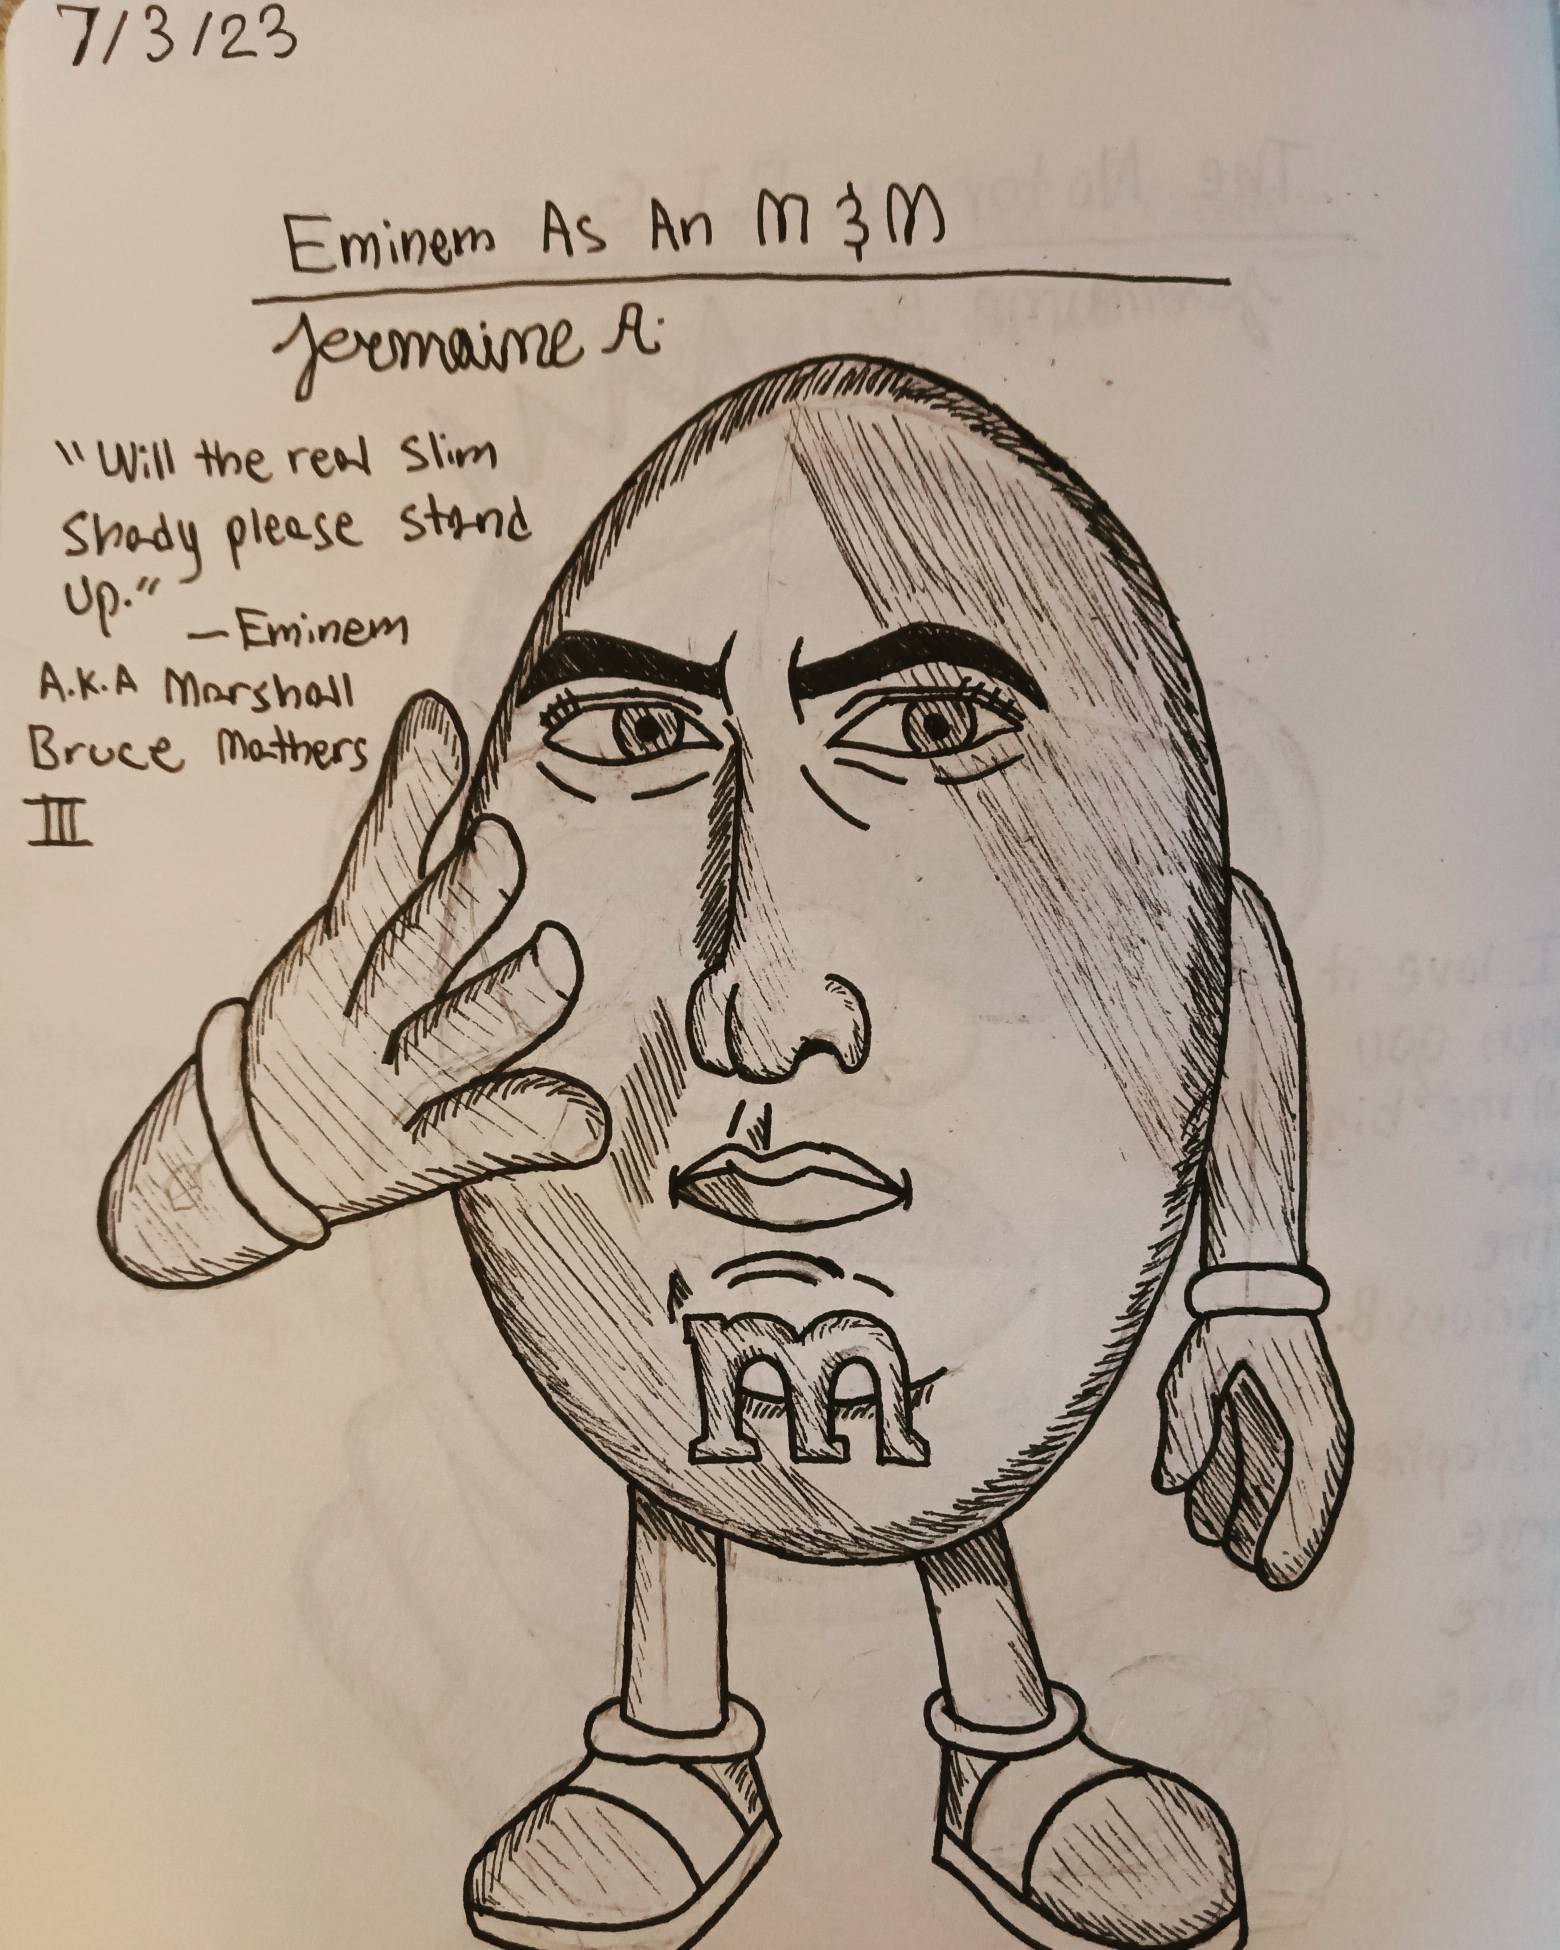 7/3/23
Eminem As An M & M
Jermaine A.
"Will the real Slim
Shady please stand
Up."
—Eminem
A.K.A Marshall
Bruce Mathers
III
m